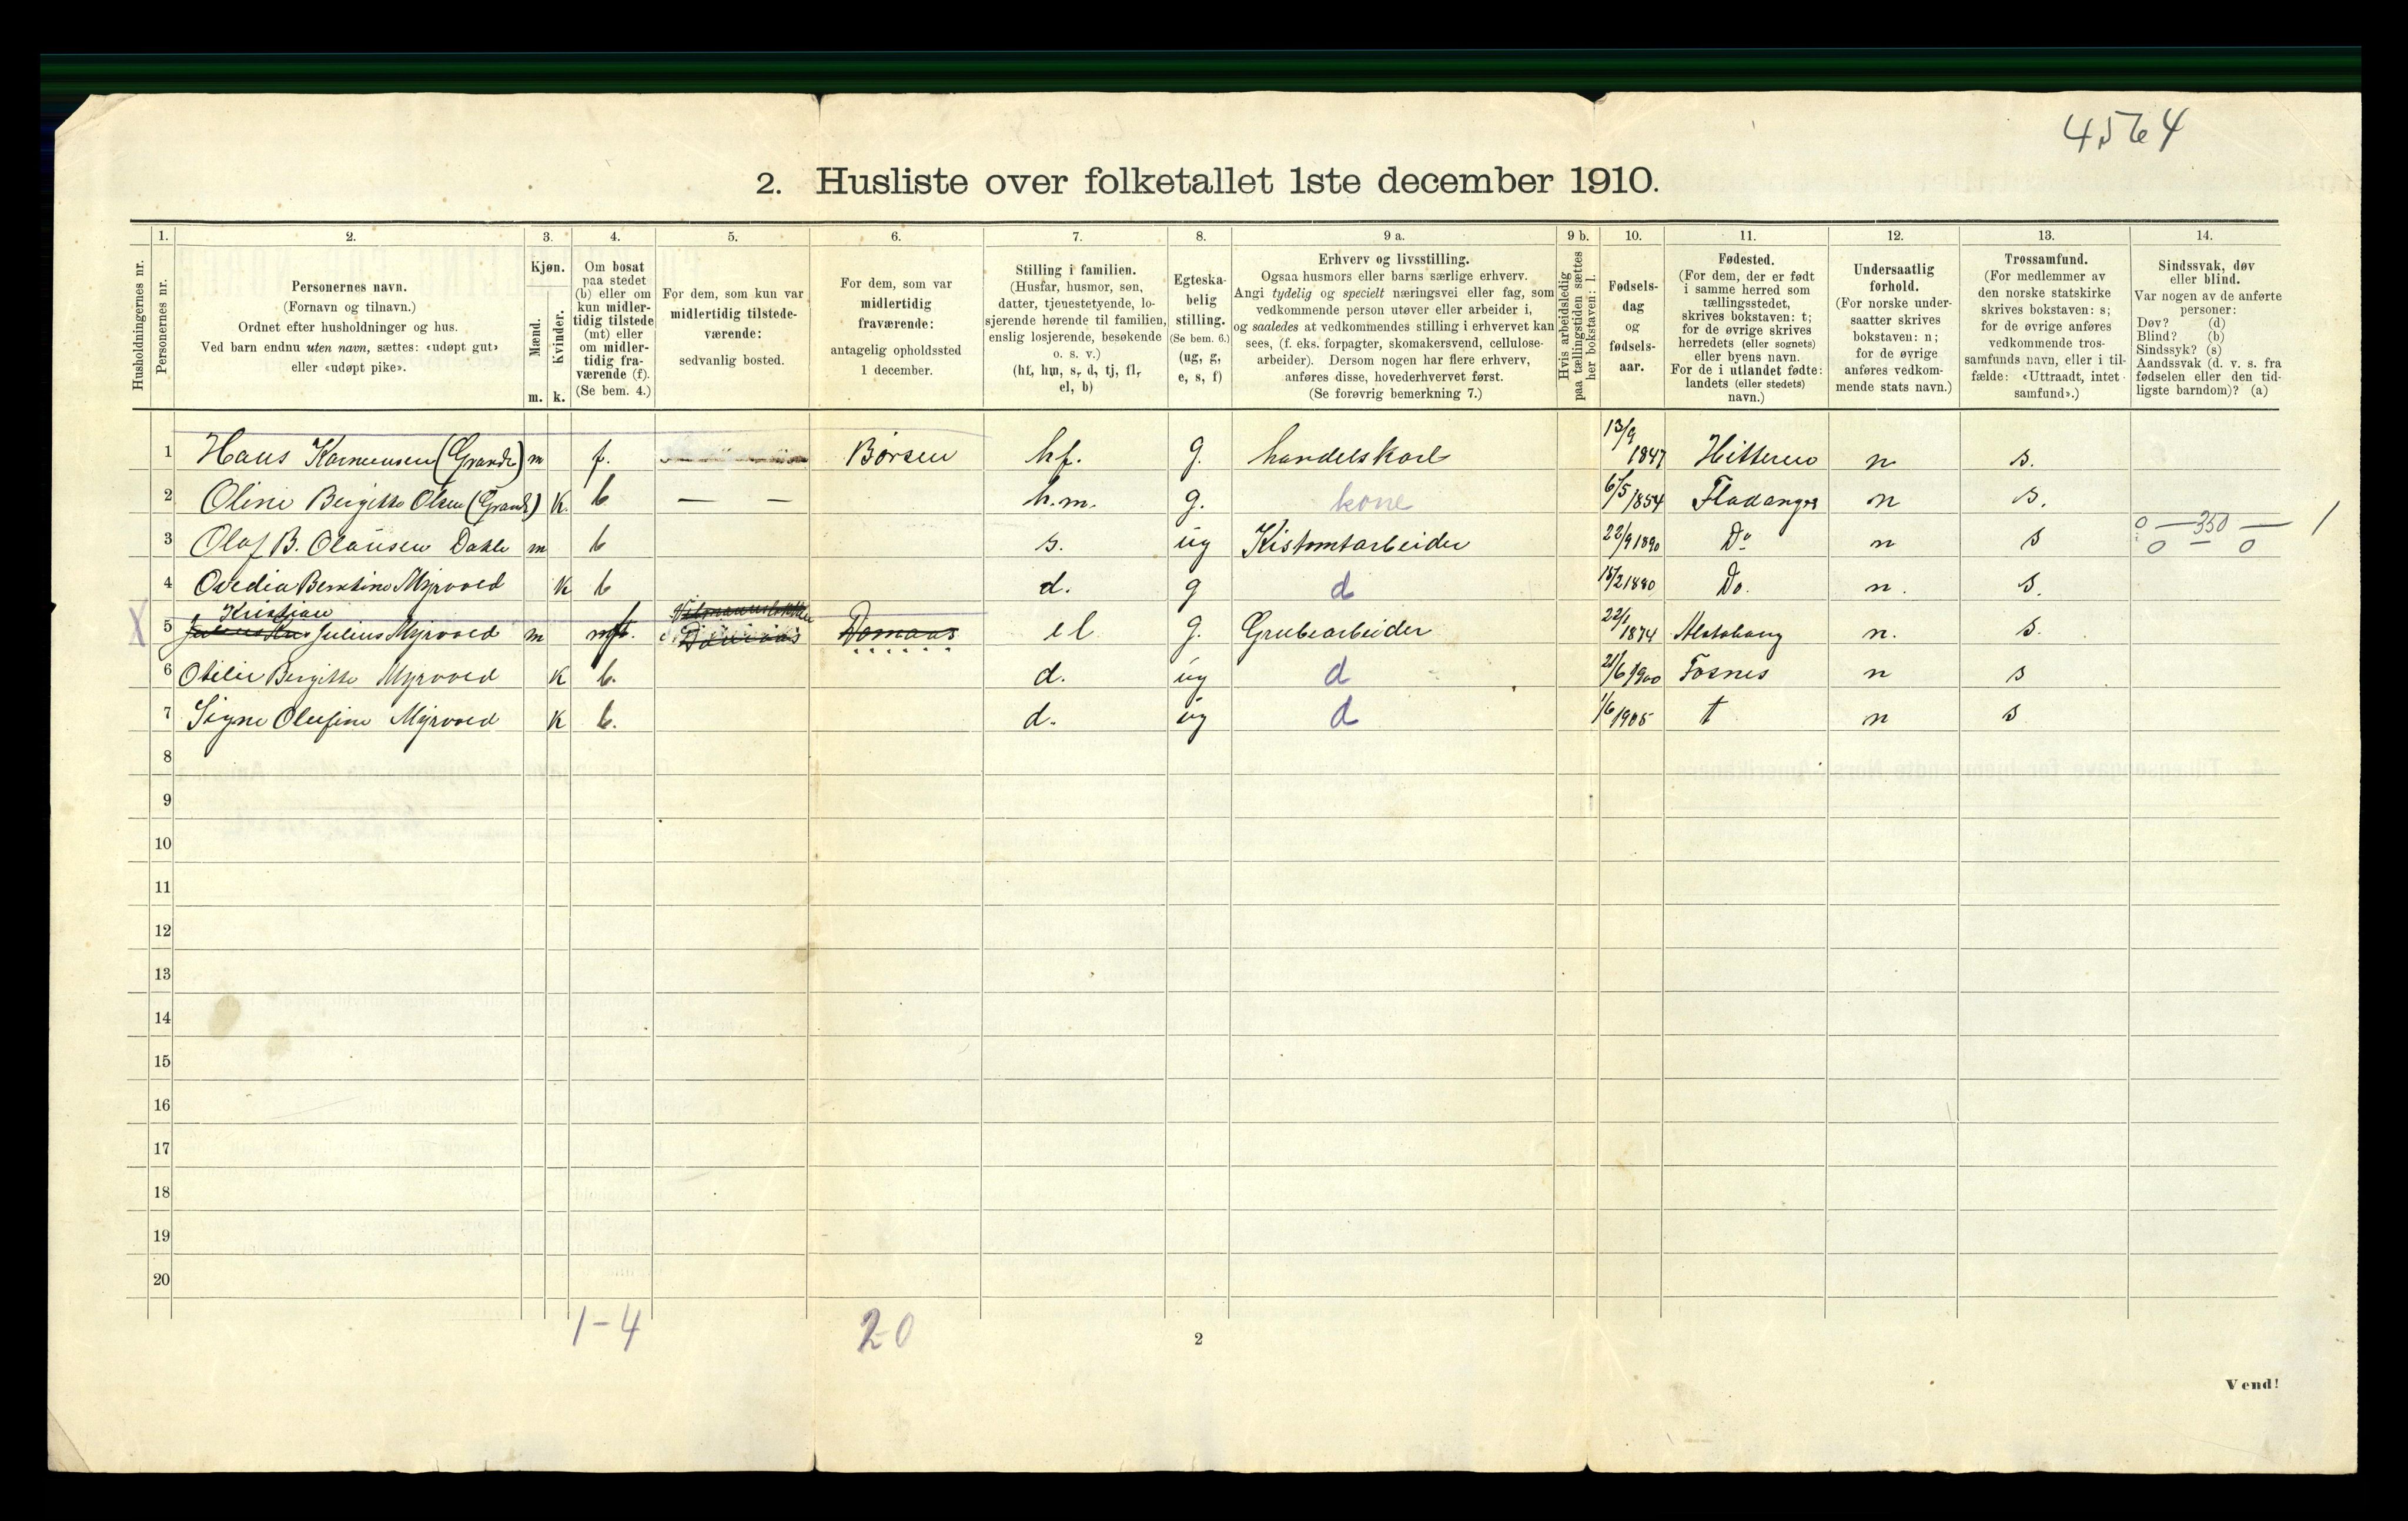 4564
2. Husliste over folketallet 1ste december 1910.
Husholdningernes nr.
1.
Personernes nr.
2.
Personernes navn.
(Fornavn og tilnavn.)
Ordnet efter husholdninger og hus.
Ved barn endnu uten navn, sættes: «udøpt gut»
eller «udøpt pike».
3.
Kjøn.
Mænd.
Kvinder.
m. k.
4.
Om bosat
paa stedet
(b) eller om
kun midler-
tidig tilstede
(mt) eller
om midler-
tidig fra-
værende (f).
(Se bem. 4.)
5.
For dem, som kun var
midlertidig tilstede-
værende:
sedvanlig bosted.
6.
For dem, som var
midlertidig
fraværende:
antagelig opholdssted
1 december.
7.
Stilling i familien.
(Husfar, husmor, søn,
datter, tjenestetyende, lo-
sjerende hørende til familien,
enslig losjerende, besøkende
o. s. v.)
(hf, hm, s, d, tj, fl,
el, b)
8.
Egteska-
belig
stilling.
(Se bem. 6.)
(ug, g,
e, s, f)
9 a.
Erhverv og livsstilling.
Ogsaa husmors eller barns særlige erhverv.
Angi tydelig og specielt næringsvei eller fag, som
vedkommende person utøver eller arbeider i,
og saaledes at vedkommendes stilling i erhvervet kan
sees, (f. eks. forpagter, skomakersvend, cellulose-
arbeider). Dersom nogen har flere erhverv,
anføres disse, hovederhvervet først.
(Se forøvrig bemerkning 7.)
9 b.
Hvis arbeidsledig
paa tællingstiden sættes
her bokstaven: l.
10.
Fødsels-
dag
og
fødsels-
aar.
11.
Fødested.
(For dem, der er født
i samme herred som
tællingsstedet,
skrives bokstaven: t;
for de øvrige skrives
herredets (eller sognets)
eller byens navn.
For de i utlandet fødte:
landets (eller stedets)
navn.)
12.
Undersaatlig
forhold.
(For norske under-
saatter skrives
bokstaven: n;
for de øvrige
anføres vedkom-
mende stats navn.)
13.
Trossamfund.
(For medlemmer av
den norske statskirke
skrives bokstaven: s;
for de øvrige anføres
vedkommende tros-
samfunds navn, eller i til-
fælde: «Uttraadt, intet
samfund».)
14.
Sindssvak, døv
eller blind.
Var nogen av de anførte
personer:
Døv? (d)
Blind? (b)
Sindssyk? (s)
Aandssvak (d. v. s. fra
fødselen eller den tid-
ligste barndom)? (a)
1 Hans (Grande) m f. Børsen hf. g. handelskarl 13/9 1847 Hitteren n s.
2 Oline Bergitte Olsen (Grande) k. b — — h.m. g. kone 6/5 1854 Fladanger n s.
3 Olaf B. Olausen Dahle m b s. ug 22/9 1890 Do n s 0 — 350 — 0 — 0 1
4 Ovedia Berntine Myrvold k b d. g d 15/2 1880 Do. n. s.
X 5 Kristian Julius Myrvold m Domaas el g. Grubearbeider 22/1 1874 Alstahaug n. s.
6 Otelie Bergitte Myrvold k b. d. ug d 21/6 1900 Fosnes n s
7 Signe Olufine Myrvold k b. d. ug d 1/6 1905 t n s
8
9
10
11
12
13
14
15
16
17
18
19
20
1-4 20
2
Vend!